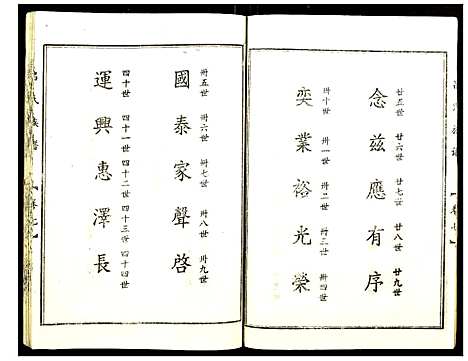 廿五世 廿六世 廿七世 廿八世 廿九世
念茲應有序
卅十世 卅一世 卅二世 卅三世 卅四世
奕業裕光榮
卅五世 卅六世 卅七世 卅八世 卅九世
國泰家聲啓
四十世 四十一世 四十二世 四十三世 四十四世
運興惠澤長